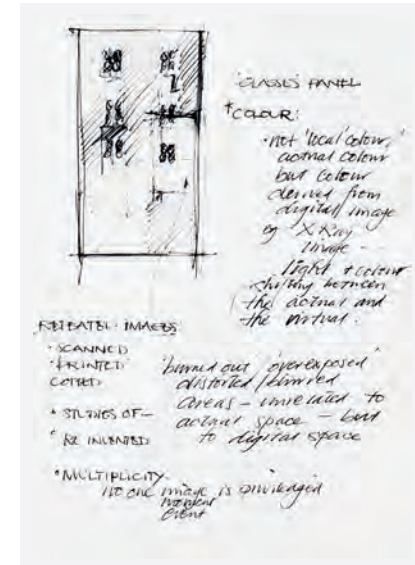 'GLASSES' PANEL
*COLOUR:
• not 'local' colour,
actual colour
but colour
derived from
digital image
eg X Ray
image –
light + colour
shifting between
the actual and
the virtual.
REPEATED IMAGES
• SCANNED
• PRINTED
COPIED
* STUDIES OF –
* RE INVENTED
'burned out' 'overexposed'
distorted/blurred
areas – unrelated to
actual space – but
to digital space
*MULTIPLICITY.
no one image is privileged
moment
event